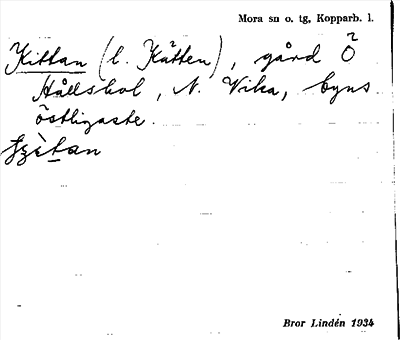 Mora sn o. tg, Kopparb. l.
Kittan (l. Kätten), gård Ö
Hållskol, N. Vika, byns
östligaste.
Bror Lindén 1934